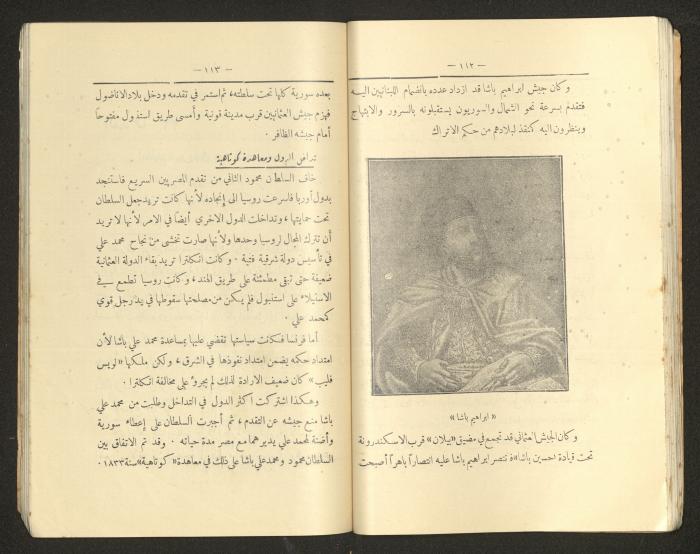 — ١١٢ —
وكان جيش ابراهيم باشا قد ازداد عدده بانضمام اللبنانيين اليه
فتقدم بسرعة نحو الشمال والسوريون يستقبلونه بالسرور والابتهاج
وينظرون اليه كمنقذ لبلادهم من حكم الاتراك
« ابراهيم باشا »
وكان الجيش العثماني قد تجمع في مضيق «بيلان» قرب الاسكندرونة
تحت قيادة احسين باشا» فانتصر ابراهيم باشا عليه انتصاراً باهراً أصبحت
— ١١٣ —
بعده سورية كلها تحت سلطته، ثم استمر في تقدمه ودخل بلاد الاناضول
فهزم جيش العثمانيين قرب مدينة قونية وأمسى طريق استنبول مفتوحاً
أمام جيشه الظافر .
تداخل الدول ومعاهدة كوتاهية
خاف السلطان محمود الثاني من تقدم المصريين السريع فاستنجد
بدول أوربا فاسرعت روسيا الى إنجاده لأنها كانت تريد جعل السلطان
تحت حمايتها، وتداخلت الدول الاخرى أيضاً في الامر لأنها لا تريد
أن تترك المجال لروسيا وحدها ولأنها صارت تخشى من نجاح محمد علي
في تأسيس دولة شرقية فتية . وكانت انكلترا تريد بقاء الدولة العثمانية
ضعيفة حتى تبقى مطمئنة على طريق الهند، وكانت روسيا تطمع في
الاستيلاء على استانبول فلم يكن من مصلحتها سقوطها في يد رجل قوي
كمحمد علي .
أما فرنسا فكانت سياستها تقضي عليها بمساعدة محمد علي باشا لأن
امتداد حكمه يضمن امتداد نفوذها في الشرق، ولكن ملكها «لويس
فليب» كان ضعيف الارادة لذلك لم يجرؤ على مخالفة انكلترا .
وهكذا اشتركت أكثر الدول في التداخل وطلبت من محمد علي
باشا منع جيشه عن التقدم، ثم أجبرت السلطان على إعطاء سورية
وأضنة لمحمد علي يديرهما مع مصر مدة حياته . وقد تم الاتفاق بين
السلطان محمود ومحمد علي باشا على ذلك في معاهدة «كوتاهية» سنة ١٨٣٣.